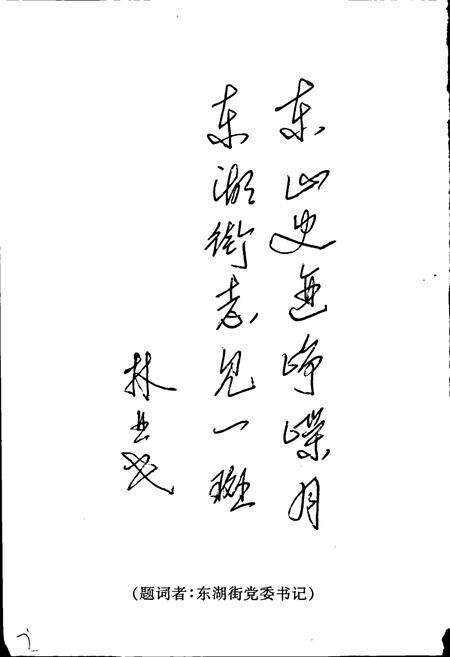 东山史迹峥嵘月
东湖街志见一斑
林
(题词者:东湖街党委书记)